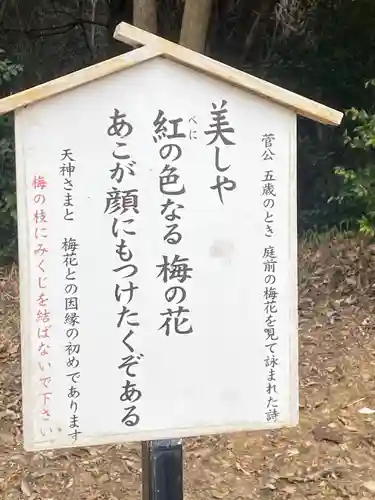 菅公 五歳のとき 庭前の梅花を見て詠まれた詩
美しや
紅の色なる 梅の花
べに
あこが顔にもつけたくぞある
天神さまと 梅花との因縁の初めであります
梅の枝にみくじを結ばないで下さい